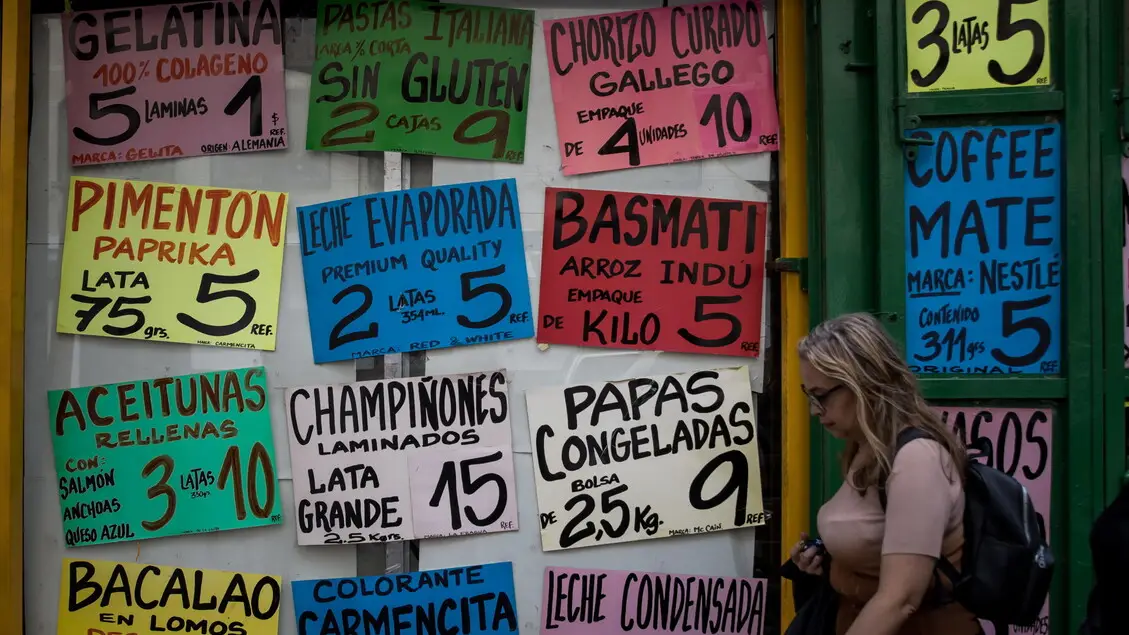 GELATINA
100% COLAGENO
5 LAMINAS 1 $ REF.
MARCA: GELITA ORIGEN: ALEMANIA
PASTAS ITALIANA
MARCA % CORTA
SIN GLUTEN
2 CAJAS 9 REF.
CHORIZO CURADO
GALLEGO
EMPAQUE
DE 4 UNIDADES 10 REF.
3 LATAS 5 REF
PIMENTÓN
PAPRIKA
LATA
75 grs. 5 REF.
MARCA: CARMENCITA
LECHE EVAPORADA
PREMIUM QUALITY
2 LATAS 5 REF.
354 ML.
MARCA: RED & WHITE
BASMATI
ARROZ INDÚ
EMPAQUE
DE KILO 5 REF.
COFFEE
MATE
MARCA: NESTLÉ
CONTENIDO
311 grs 5 REF.
ORIGINAL
ACEITUNAS
RELLENAS
CON:
SALMÓN
ANCHOAS
QUESO AZUL
3 LATAS 10 REF
350 gr.
CHAMPIÑONES
LAMINADOS
LATA
GRANDE 15 REF
2.5 Kgrs.
PAPAS
CONGELADAS
BOLSA
DE 2,5 Kg. 9 REF
MARCA: Mc CAIN
BACALAO
EN LOMOS
COLORANTE
CARMENCITA
LECHE CONDENSADA